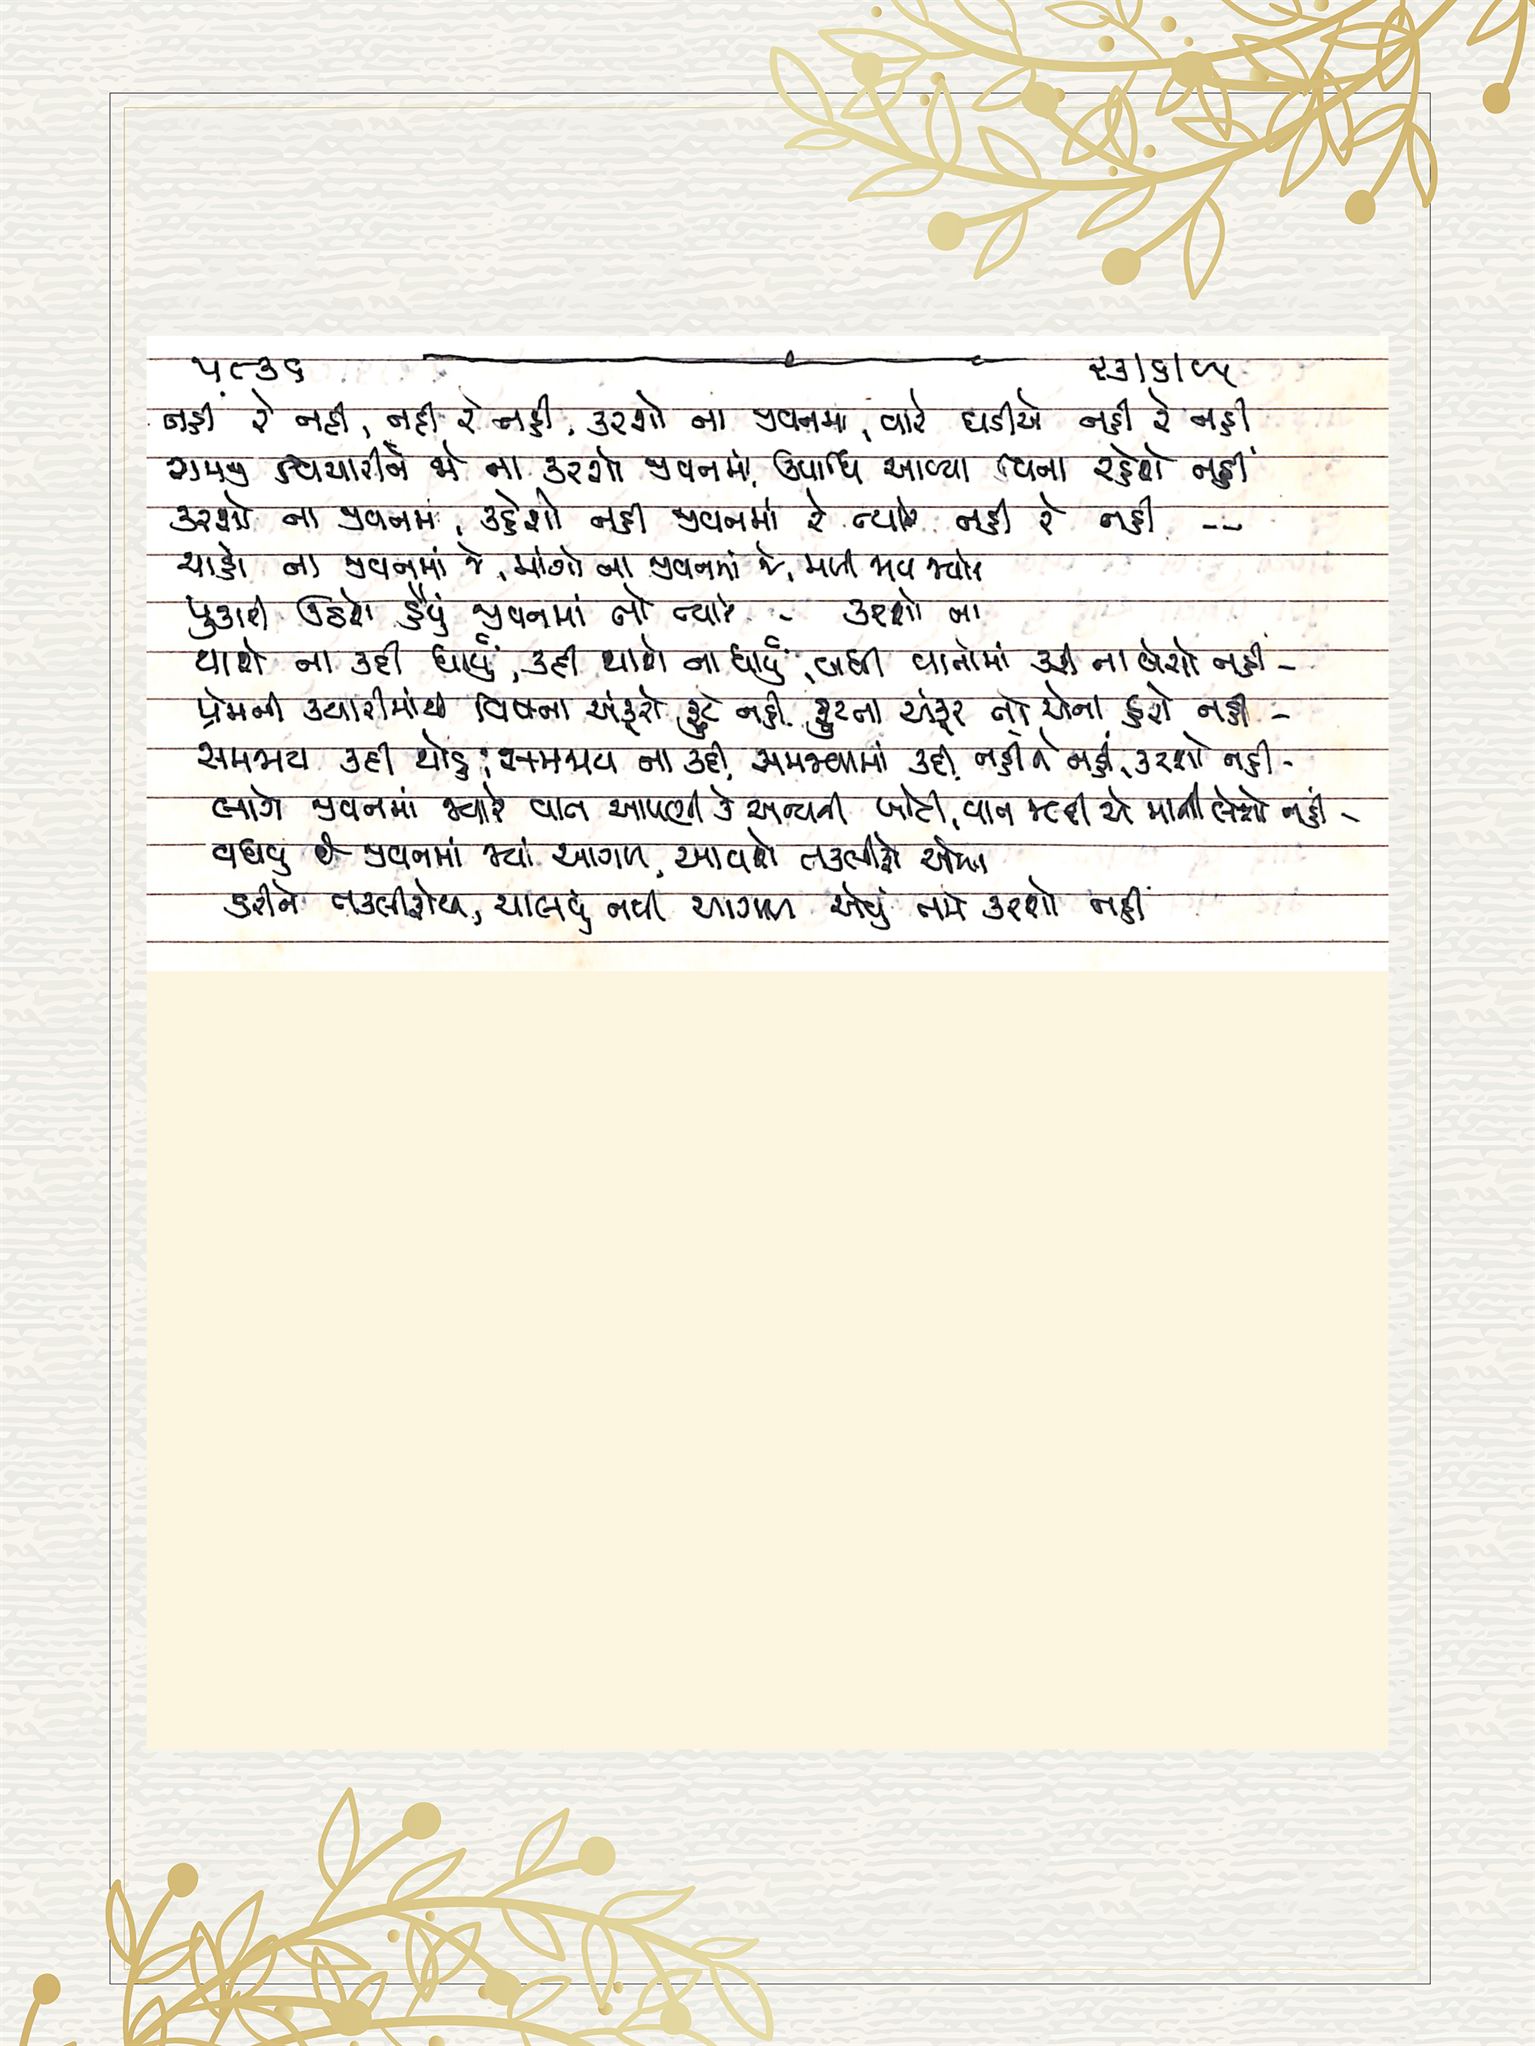 ૫૮૩૬ ૨૩/૬/૯૫
નહીં રે નહીં, નહીં રે નહીં, કરશો ના જીવનમાં, વારે ઘડીએ નહીં રે નહીં
સમજી વિચારીને જો ના કરશો જીવનમાં, ઉપાધિ આવ્યા વિના રહેશે નહીં
કરશો ના જીવનમાં, કહેશો નહીં જીવનમાં રે ત્યારે નહીં રે નહીં --
ચાહો ના જીવનમાં જે, માંગો ના જીવનમાં જે, મળી જાય જ્યારે
પુકારી ઉઠશો હૈયું જીવનમાં તો ત્યારે - કરશો ના
થાશે ના કદી ધાર્યું, કદી થાશે ના ધાર્યું, બધી વાતોમાં કરી ના બેશો નહીં -
પ્રેમની ક્યારીમાંથી વિષના અંકૂરો ફૂટે નહીં, ફૂટતા અંકૂર તો એના હશે નહીં -
સમજાય કદી થોડું, સમજાય ના કદી, સમજવામાં કદી નહીં ને નહીં, કરશો નહીં -
લાગે જીવનમાં જ્યારે વાત આપણી કે અન્યની ખોટી, વાત જલદી એ માની લેશો નહીં -
વધવું છે જીવનમાં જ્યાં આગળ, આવશે તકલીફો એમાં
ડરીને તકલીફોથી, ચાલવું નથી આગળ એવું તમે કરશો નહીં